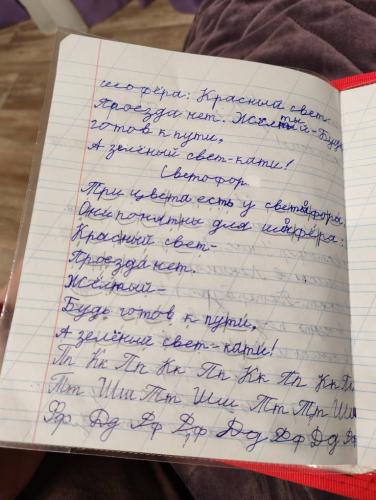 шофёра: Красный свет-
Проезда нет. Жёлтый-Будь
готов к пути,
А зелёный свет-кати!
Светофор.
Три цвета есть у светофора,
Они понятны для шофёра:
Красный свет-
Проезда нет.
Жёлтый-
Будь готов к пути,
А зелёный свет-кати!
Пп Кк Пп Кк Пп Кк Пп Кк Пп
Тт Шш Тт Шш Тт Тт Шш
Фф Дд Фф Дф Дд Фф Дд Фф